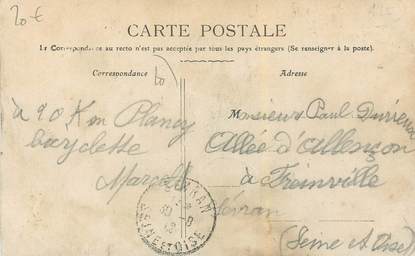 20€
CARTE POSTALE
La Correspondance au recto n'est pas acceptée par tous les pays étrangers (Se renseigner à la poste).
Correspondance
Adresse
à 90 Km Plancy
bicyclette
Marcel
Monsieur Paul Durieux
Allée d'Allençon
à Freinville
Sevran
(Seine & Oise)
SEVRAN
SEINE ET OISE